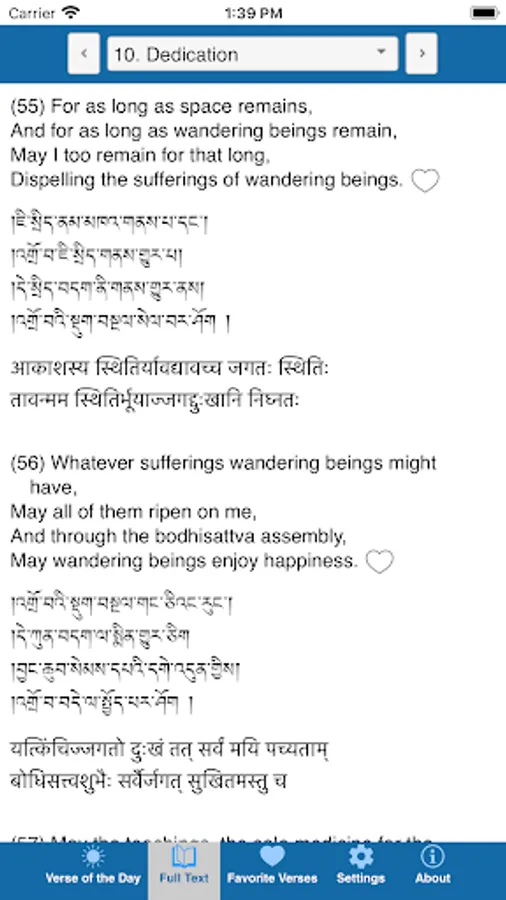 Carrier 1:39 PM
‹ 10. Dedication ›
(55) For as long as space remains,
And for as long as wandering beings remain,
May I too remain for that long,
Dispelling the sufferings of wandering beings.
།ཇི་སྲིད་ནམ་མཁའ་གནས་པ་དང་།
།འགྲོ་བ་ཇི་སྲིད་གནས་གྱུར་པ།
།དེ་སྲིད་བདག་ནི་གནས་གྱུར་ནས།
།འགྲོ་བའི་སྡུག་བསྔལ་སེལ་བར་ཤོག །
आकाशस्य स्थितिर्यावद्यावच्च जगतः स्थितिः
तावन्मम स्थितिर्भूयाज्जगद्दुःखानि निघ्नतः
(56) Whatever sufferings wandering beings might
have,
May all of them ripen on me,
And through the bodhisattva assembly,
May wandering beings enjoy happiness.
།འགྲོ་བའི་སྡུག་བསྔལ་གང་ཅིའང་རུང་།
།དེ་ཀུན་བདག་ལ་སྨིན་གྱུར་ཅིག
།བྱང་ཆུབ་སེམས་དཔའི་དགེ་འདུན་གྱིས།
།འགྲོ་བ་བདེ་ལ་སྤྱོད་པར་ཤོག །
यत्किंचिज्जगतो दुःखं तत् सर्वं मयि पच्यताम्
बोधिसत्त्वशुभैः सर्वैर्जगत् सुखितमस्तु च
(57) May the teachings, the sole medicine for the
Verse of the Day Full Text Favorite Verses Settings About